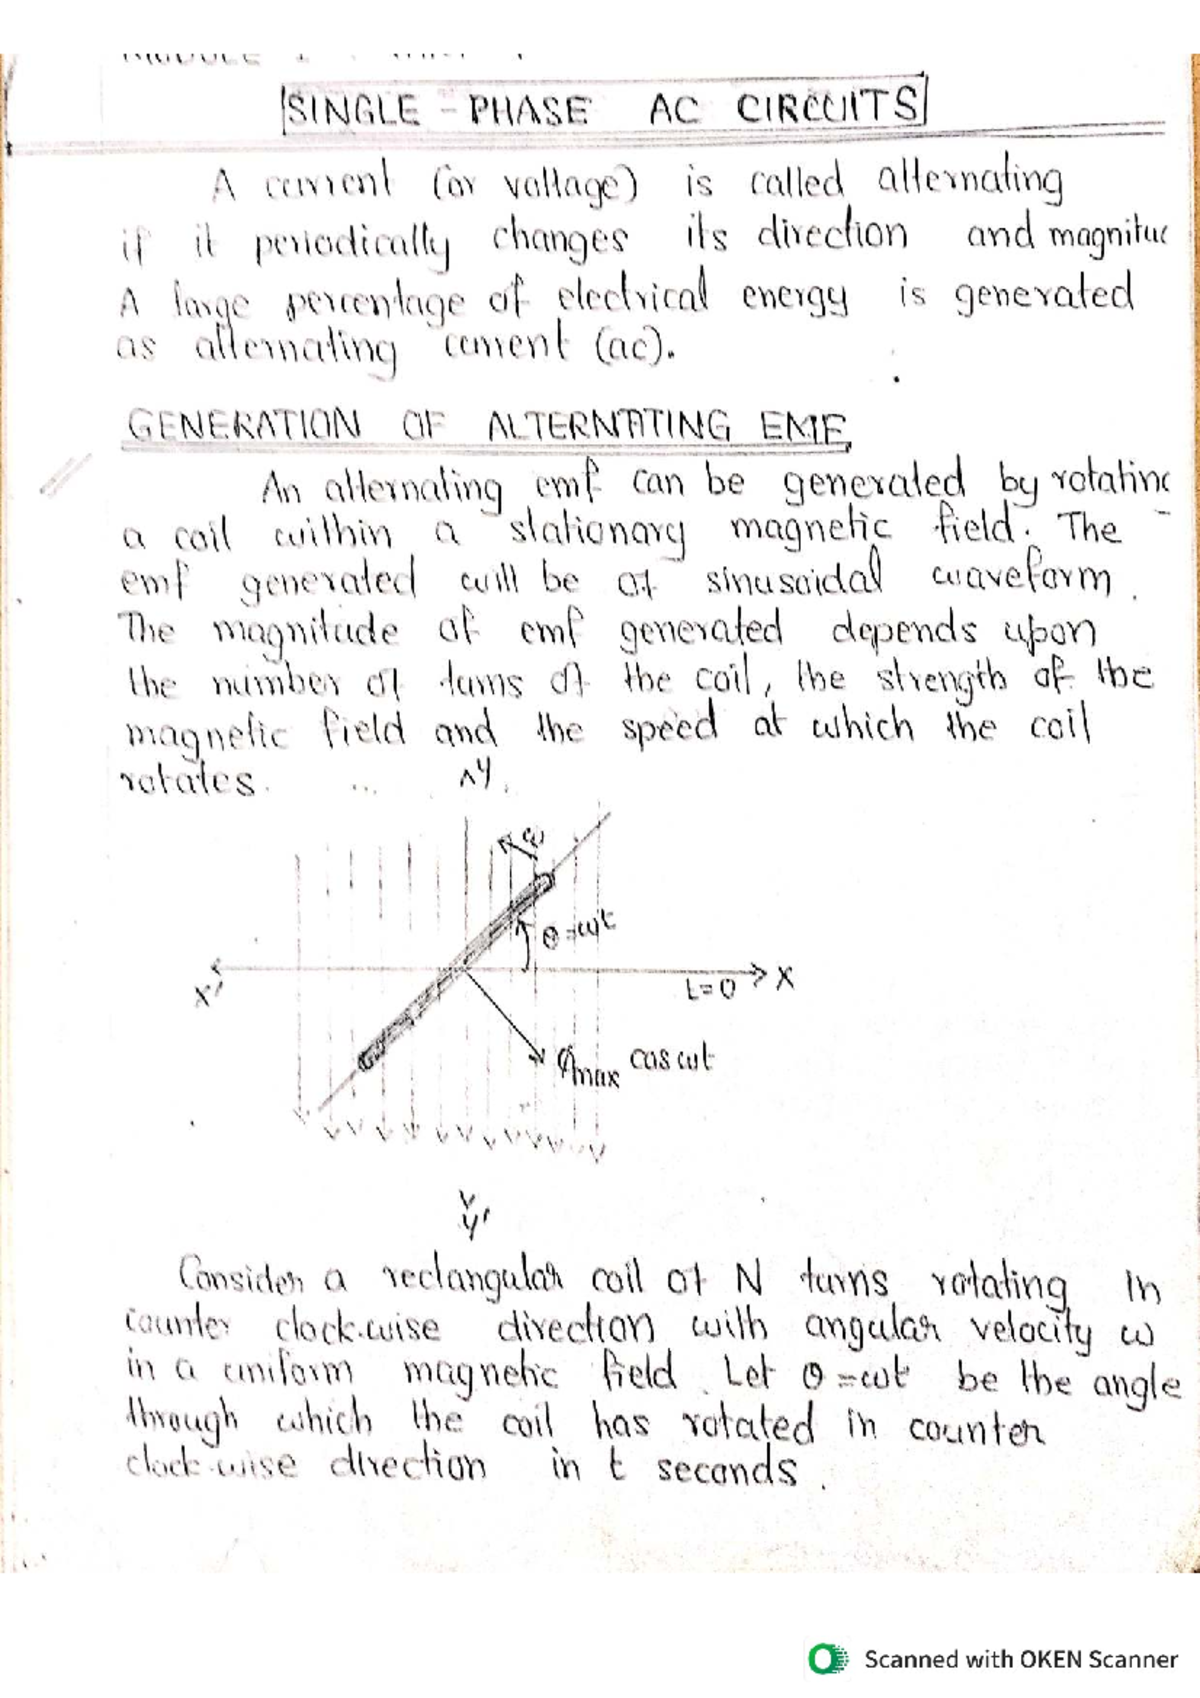 MODULE 1
SINGLE - PHASE AC CIRCUITS
A current (or voltage) is called alternating
if it periodically changes its direction and magnituc
A large percentage of electrical energy is generated
as alternating current (ac).
GENERATION OF ALTERNATING EMF
An alternating emf can be generated by rotating
a coil within a stationary magnetic field. The
emf generated will be of sinusoidal waveform.
The magnitude of emf generated depends upon
the number of turns of the coil, the strength of the
magnetic field and the speed at which the coil
rotates.
Y
ω
θ=ωt
X'
t=0
X
φmax cos ωt
Y'
Consider a rectangular coil of N turns rotating in
counter clock-wise direction with angular velocity ω
in a uniform magnetic field. Let θ=ωt be the angle
through which the coil has rotated in counter
clock-wise direction in t seconds.
Scanned with OKEN Scanner